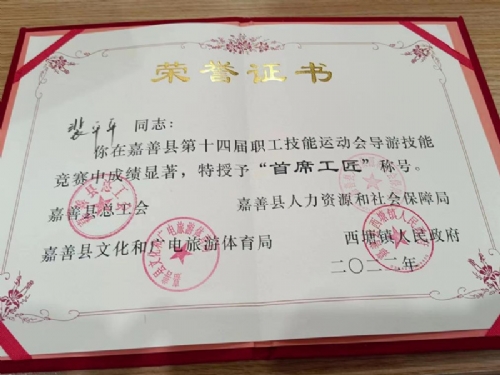 荣誉证书
裴平平 同志：
你在嘉善县第十四届职工技能运动会导游技能
竞赛中成绩显著，特授予“首席工匠”称号。
嘉善县总工会 嘉善县人力资源和社会保障局
嘉善县文化和广电旅游体育局 西塘镇人民政府
二〇二二年